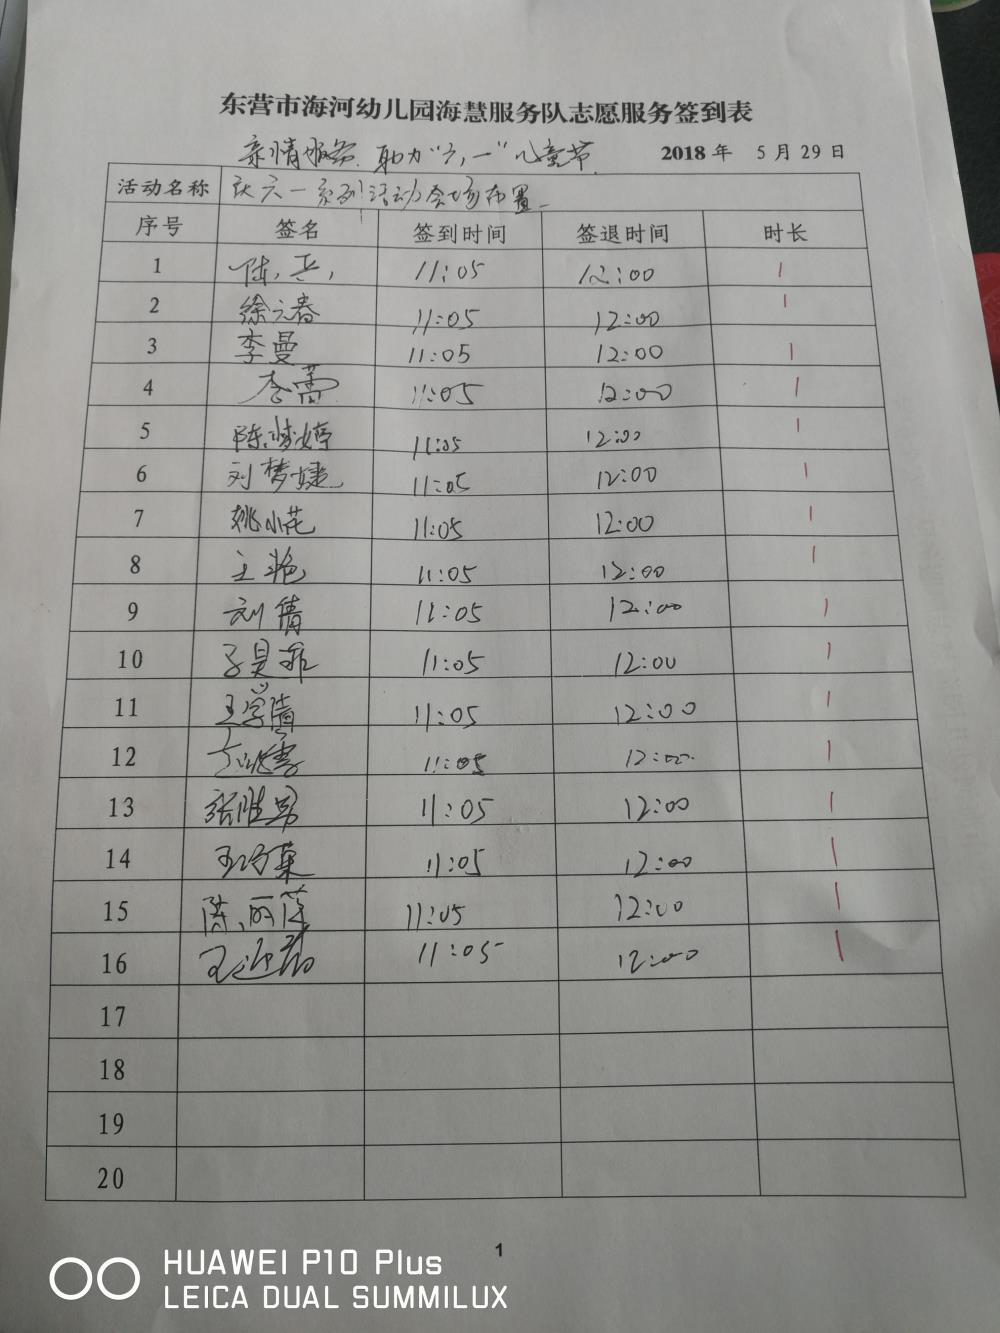 东营市海河幼儿园海慧服务队志愿服务签到表
亲情服务 助力“六,一”儿童节 2018 年 5 月 29 日
活动名称 庆六一系列活动会场布置
序号 签名 签到时间 签退时间 时长
1 11:05 12:00 1
2 徐元春 11:05 12:00 1
3 李曼 11:05 12:00 1
4 李蕾 11:05 12:00 1
5 陈梦婷 11:05 12:00 1
6 刘梦婕 11:05 12:00 1
7 姚小花 11:05 12:00 1
8 王艳 11:05 12:00 1
9 刘倩 11:05 12:00 1
10 11:05 12:00 1
11 王学清 11:05 12:00 1
12 11:05 12:00 1
13 张胜男 11:05 12:00 1
14 王巧菜 11:05 12:00 1
15 陈丽莲 11:05 12:00 1
16 11:05 12:00 1
17
18
19
20
1
HUAWEI P10 Plus
LEICA DUAL SUMMILUX